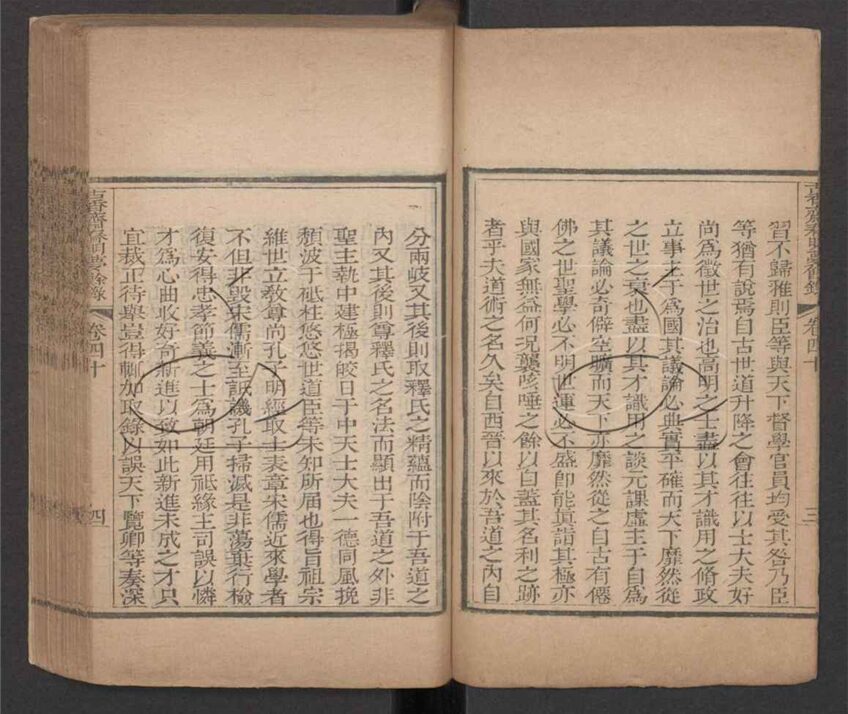 古香齋春明夢餘錄 卷四十 三
習不歸雅則臣等與天下督學官員均受其咎乃臣
等猶有說焉自古世道升降之會往往以士大夫好
尚為徵世之治也高明之士盡以其才識用之脩政
立事主于為國其議論必典實平確而天下靡然從
之世之衰也盡以其才識用之談元課虛主于自為
其議論必奇僻空曠而天下亦靡然從之自古有僊
佛之世聖學必不明世運必不盛即能真詣其極亦
與國家無益何況襲咳唾之餘以自蓋其名利之跡
者乎夫道術之名久矣自西晉以來於吾道之內自
分兩岐又其後則取釋氏之精蘊而陰附于吾道之
內又其後則尊釋氏之名法而顯出于吾道之外非
聖主執中建極揭皎日于中天士大夫一德同風挽
頹波于砥柱悠悠世道臣等未知所届也得旨祖宗
維世立教尊尚孔子明經取士表章宋儒近來學者
不但非毀宋儒漸至詆譏孔子掃滅是非蕩棄行檢
復安得忠孝節義之士為朝廷用祗緣主司誤以憐
才為心曲收好奇新進以致如此新進未成之才只
宜裁正待舉豈得輒加取錄以誤天下覽卿等奏深
古香齋春明夢餘錄 卷四十 四